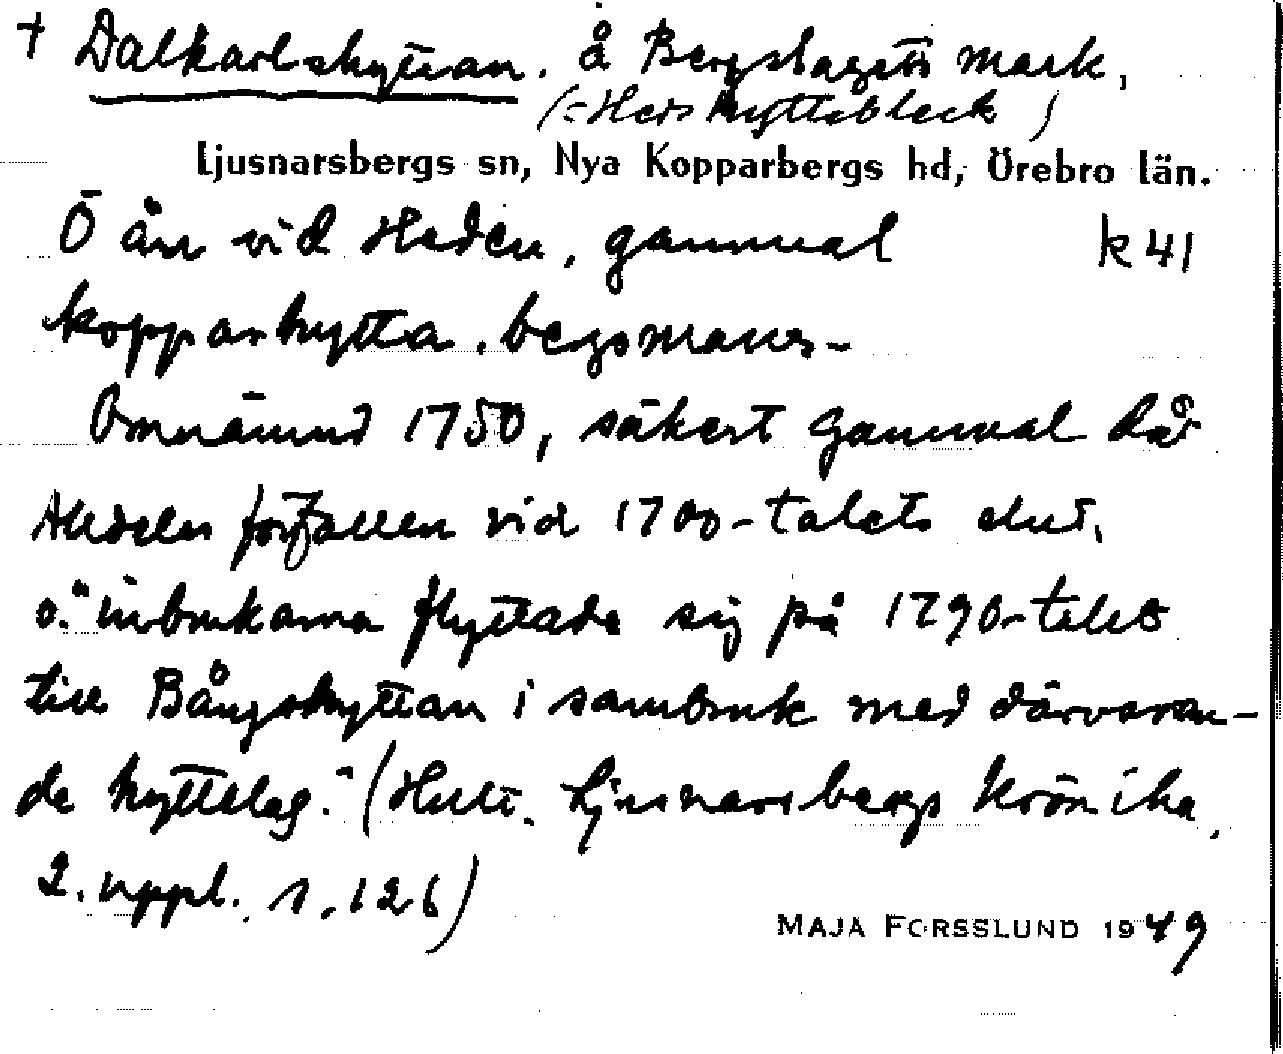 † Dalkarlshyttan. å Bergslagets mark,
(= Hedshyttebleck)
Ljusnarsbergs sn, Nya Kopparbergs hd, Örebro län.
Ö ån vid Heden, gammal k 41
kopparhytta. bergsmans-
Omnämnd 1750, säkert gammal då
Alldeles förfallen vid 1700-talets slut,
o. "inbrukarna flyttade sig på 1790-talet
till Bångshyttan i sambruk med därvaran-
de hyttelag." (Hult. Ljusnarsbergs krönika,
2. uppl. s. 126)
MAJA FORSSLUND 1949